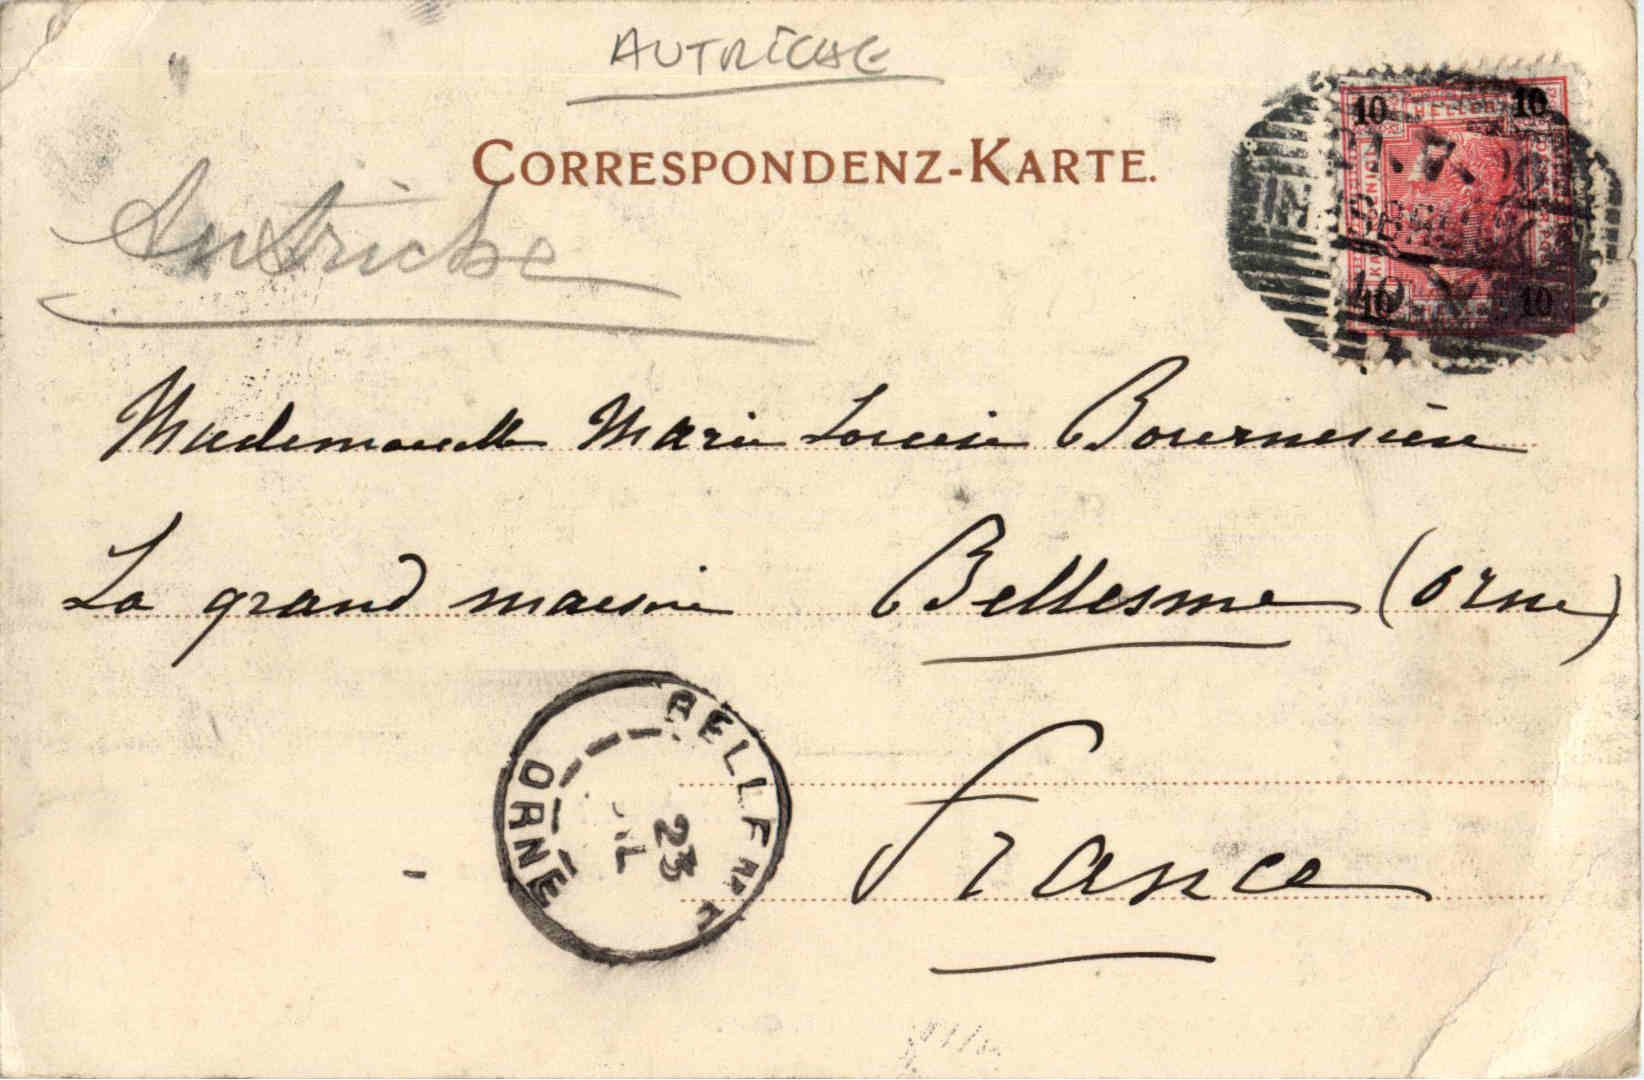 AUTRICHE
CORRESPONDENZ-KARTE.
Autriche
10 10
10 10
Mademoiselle Marie Louise
La grand maison Bellesme (Orne)
BELLE
23
ORNE
France